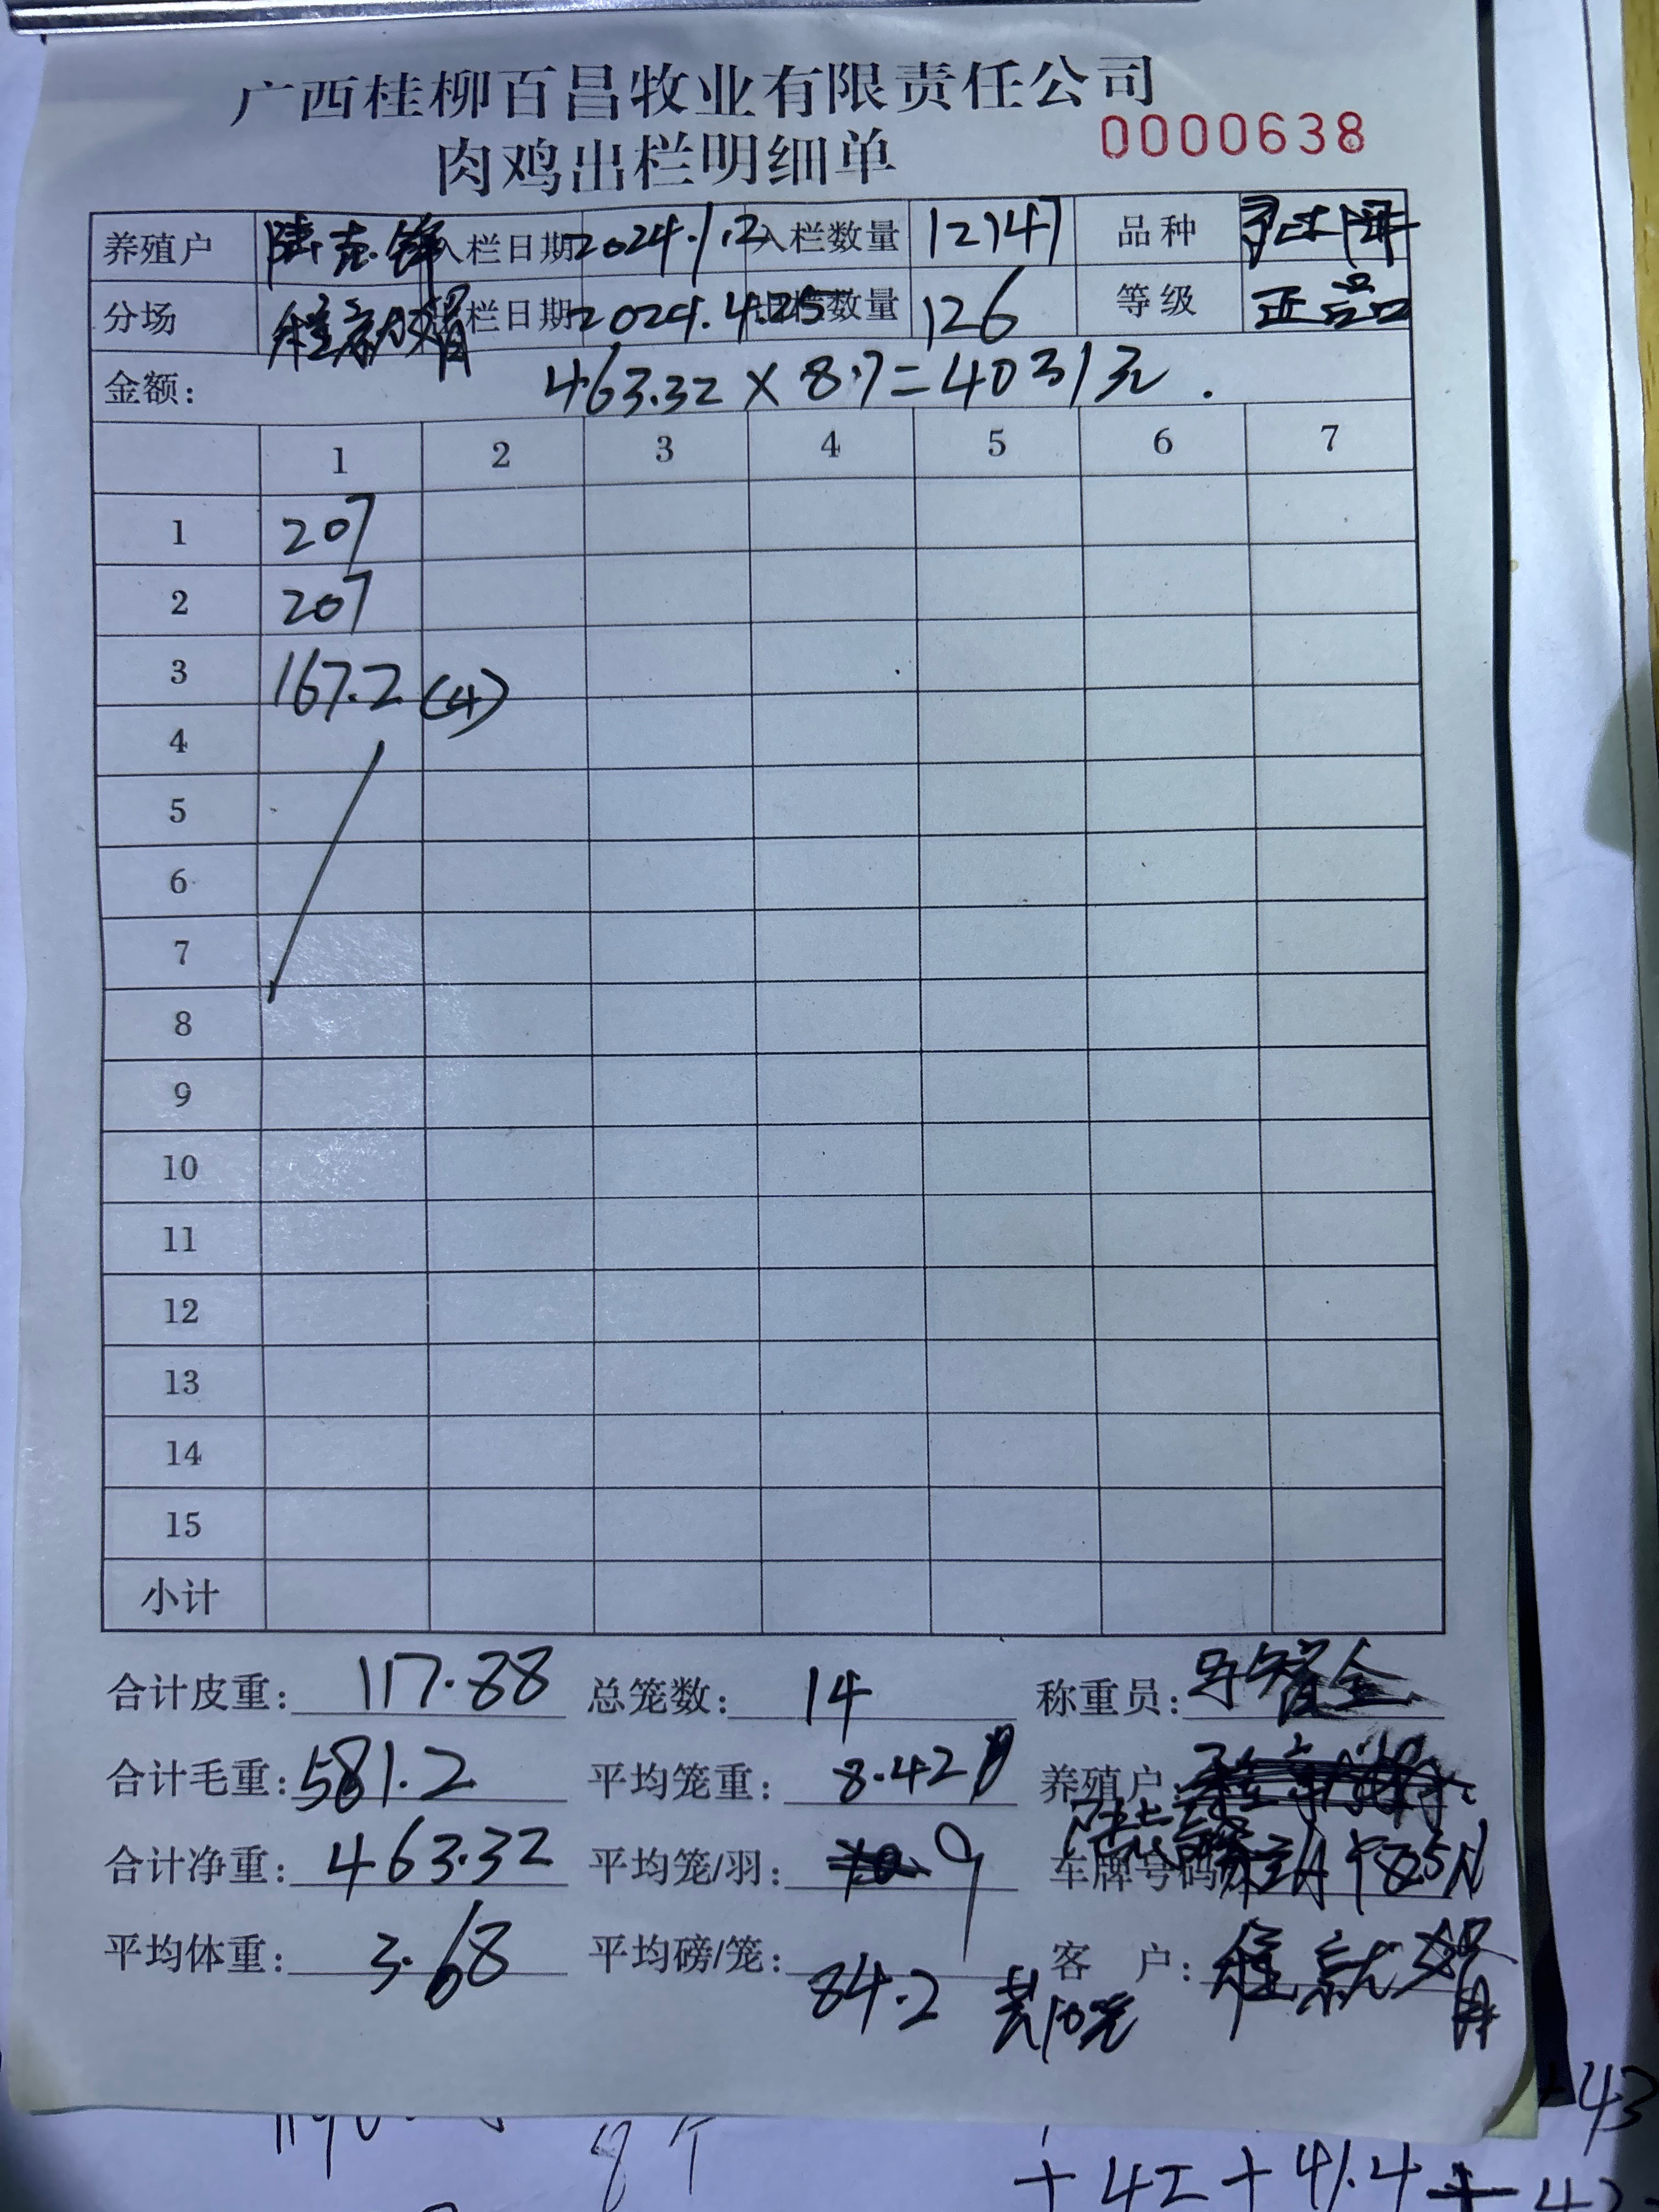 广西桂柳百昌牧业有限责任公司
肉鸡出栏明细单
0000638
养殖户 陆志锋 入栏日期 2024.1.2 入栏数量 12147 品种
分场 程就娟 出栏日期 2024.4.25 出栏数量 126 等级 正品
金额: 463.32×8.7=4031元.
1 2 3 4 5 6 7
1 207
2 207
3 167.2 (4)
4
5
6
7
8
9
10
11
12
13
14
15
小计
合计皮重: 117.88 总笼数: 14 称重员:
合计毛重: 581.2 平均笼重: 8.42 养殖户:
合计净重: 463.32 平均笼/羽: 9 车牌号码
平均体重: 3.68 平均磅/笼: 84.2 客 户: 程就娟
+42+41.4+
43